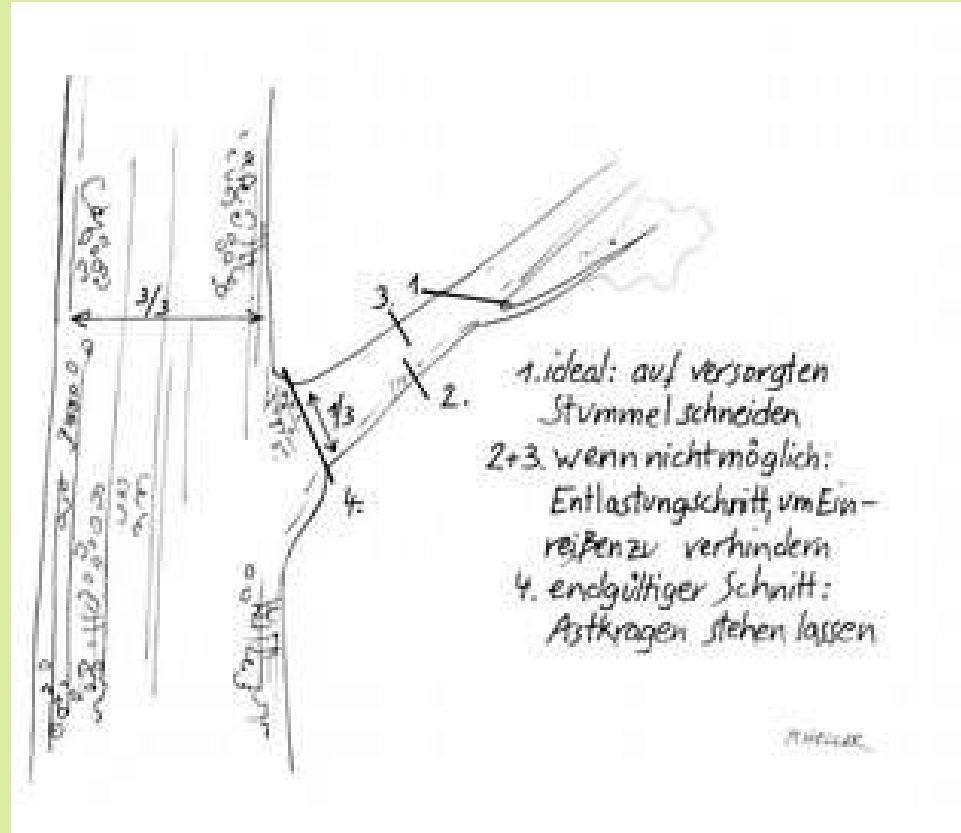 3/3
1.
3.
2.
1/3
4.
1. ideal: auf versorgten
Stummel schneiden
2+3. wenn nicht möglich:
Entlastungschnitt, um Ein-
reißen zu verhindern
4. endgültiger Schnitt:
Astkragen stehen lassen